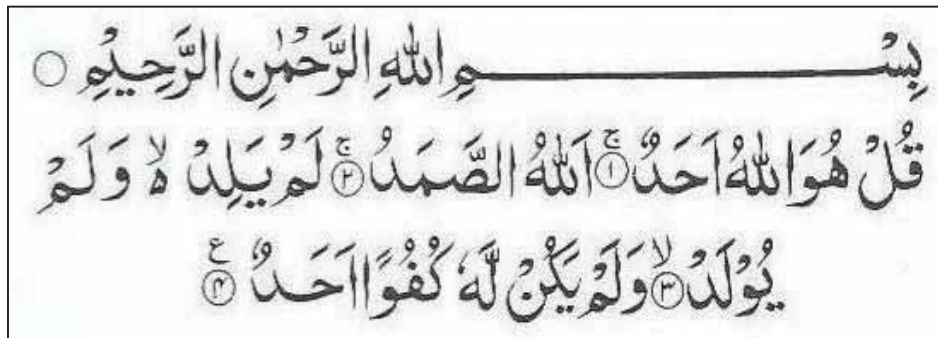 بِسْمِ اللهِ الرَّحْمٰنِ الرَّحِيْمِ ○
قُلْ هُوَ اللهُ اَحَدٌ ۚ‏﴿۱﴾ اَللهُ الصَّمَدُ ۚ‏﴿۲﴾ لَمْ يَلِدْ ۙ۬ وَ لَمْ
يُوْلَدْ ۙ‏﴿۳﴾ وَ لَمْ يَكُنْ لَّهٗ كُفُوًا اَحَدٌ ﴿۴﴾ ع